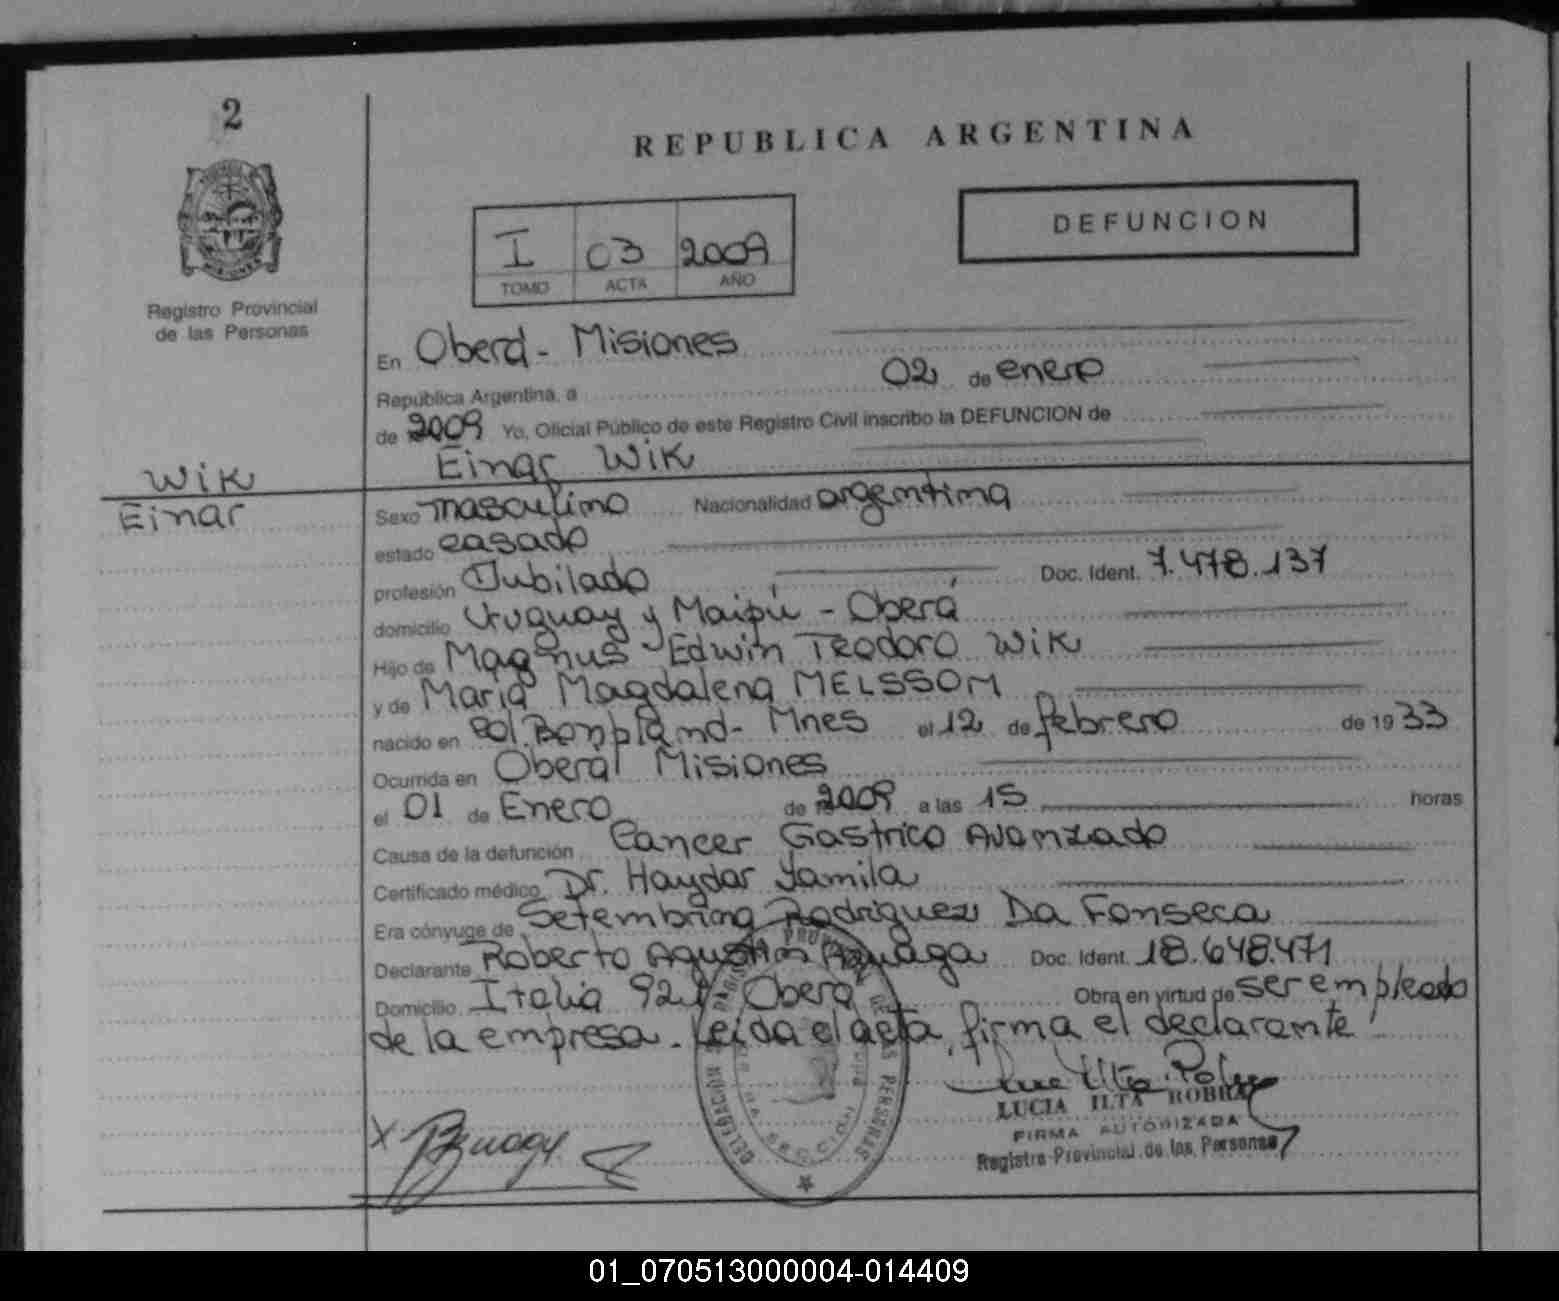 2
REPUBLICA ARGENTINA
Registro Provincial
de las Personas
I 03 2009
TOMO ACTA AÑO
DEFUNCION
En Oberá - Misiones
República Argentina, a 02 de enero
de 2009 Yo, Oficial Público de este Registro Civil inscribo la DEFUNCION de
Einar Wik
Wik
Einar
Sexo masculino Nacionalidad argentina
estado casado
profesión Jubilado Doc. Ident. 7.478.137
domicilio Uruguay y Maipú - Oberá
Hijo de Magnus Edwin Teodoro Wik
y de María Magdalena MELSSOM
nacido en Col. Bonpland - Mnes el 12 de febrero de 1933
Ocurrida en Oberá Misiones
el 01 de Enero de 2009 a las 15 horas
Causa de la defunción Cancer Gastrico Avanzado
Certificado médico Dr. Haydar Yamila
Era cónyuge de Setembrina Rodriguez Da Fonseca
Declarante Roberto Agustin Doc. Ident. 18.648.471
Domicilio Italia Oberá Obra en virtud de ser empleado
de la empresa. Leída el acta, firma el declarante
LUCIA ILTA
FIRMA AUTORIZADA
Registro Provincial de las Personas
X
DELEGACIÓN DE LAS PERSONAS
01_070513000004-014409